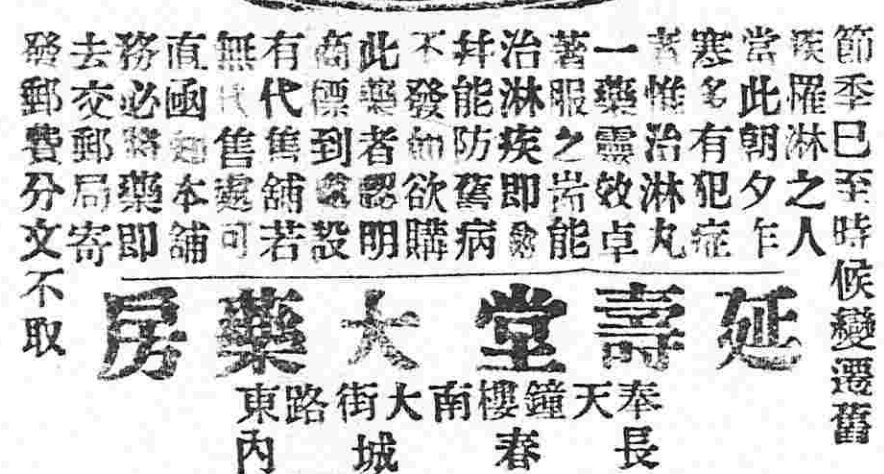 節季巳至時候變遷舊
疾羅淋之人
當此朝夕乍
寒多有犯症
者惟治淋丸
一藥靈效卓
著服之能
治淋疾即愈
幷能防舊病
不發如欲購
此藥者認明
商標到處設
有代售舖若
無代售處可
直函本舖
務必將藥即
去交郵局寄
發郵費分文不取
延壽堂大藥房
奉天鐘樓南大街路東
長春城內